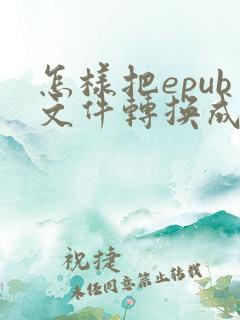 怎樣把epub
文件轉換成
祝捷
未经同意禁止转载